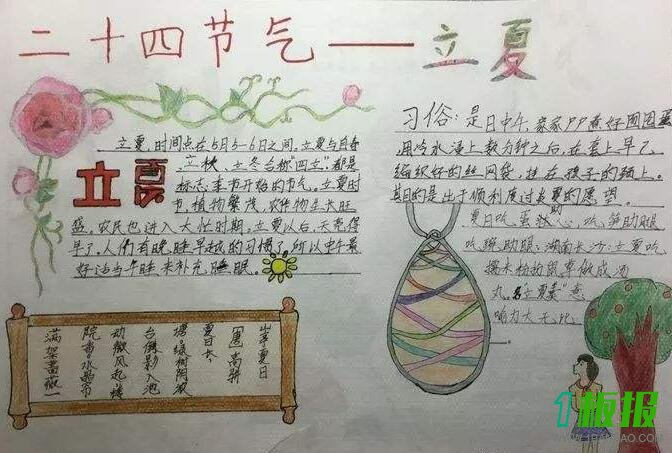 二十四节气——立夏
立夏
立夏,时间点在5月5-6日之间。立夏与自春
立秋、立冬合称“四立”都是
标志、季节开始的节气。立夏时
节,植物繁茂,农作物生长旺
盛,农民也进入大忙时期。立夏以后,天亮得
早了。人们有晚睡早起的习惯了。所以中午最
好适当午睡来补充睡眠
习俗:是日中午,家家户户煮好囫囵蛋
用冷水浸上数分钟之后,在套上早了
编织好的丝网袋,挂在孩子的颈上。
其目的是出于顺利度过炎夏的愿望。
夏日吃蛋拄心,吃笋助脚
吃助腿;湖南长沙:立夏吃
糯米粉拍鼠草做成汤
丸。名“立夏羹”意
喻力大无比。
山亭夏日
[唐]高骈
夏日长
楼绿树阴浓
台倒影入池
动微风起楼
院香水晶帘
满架蔷薇一
1板报